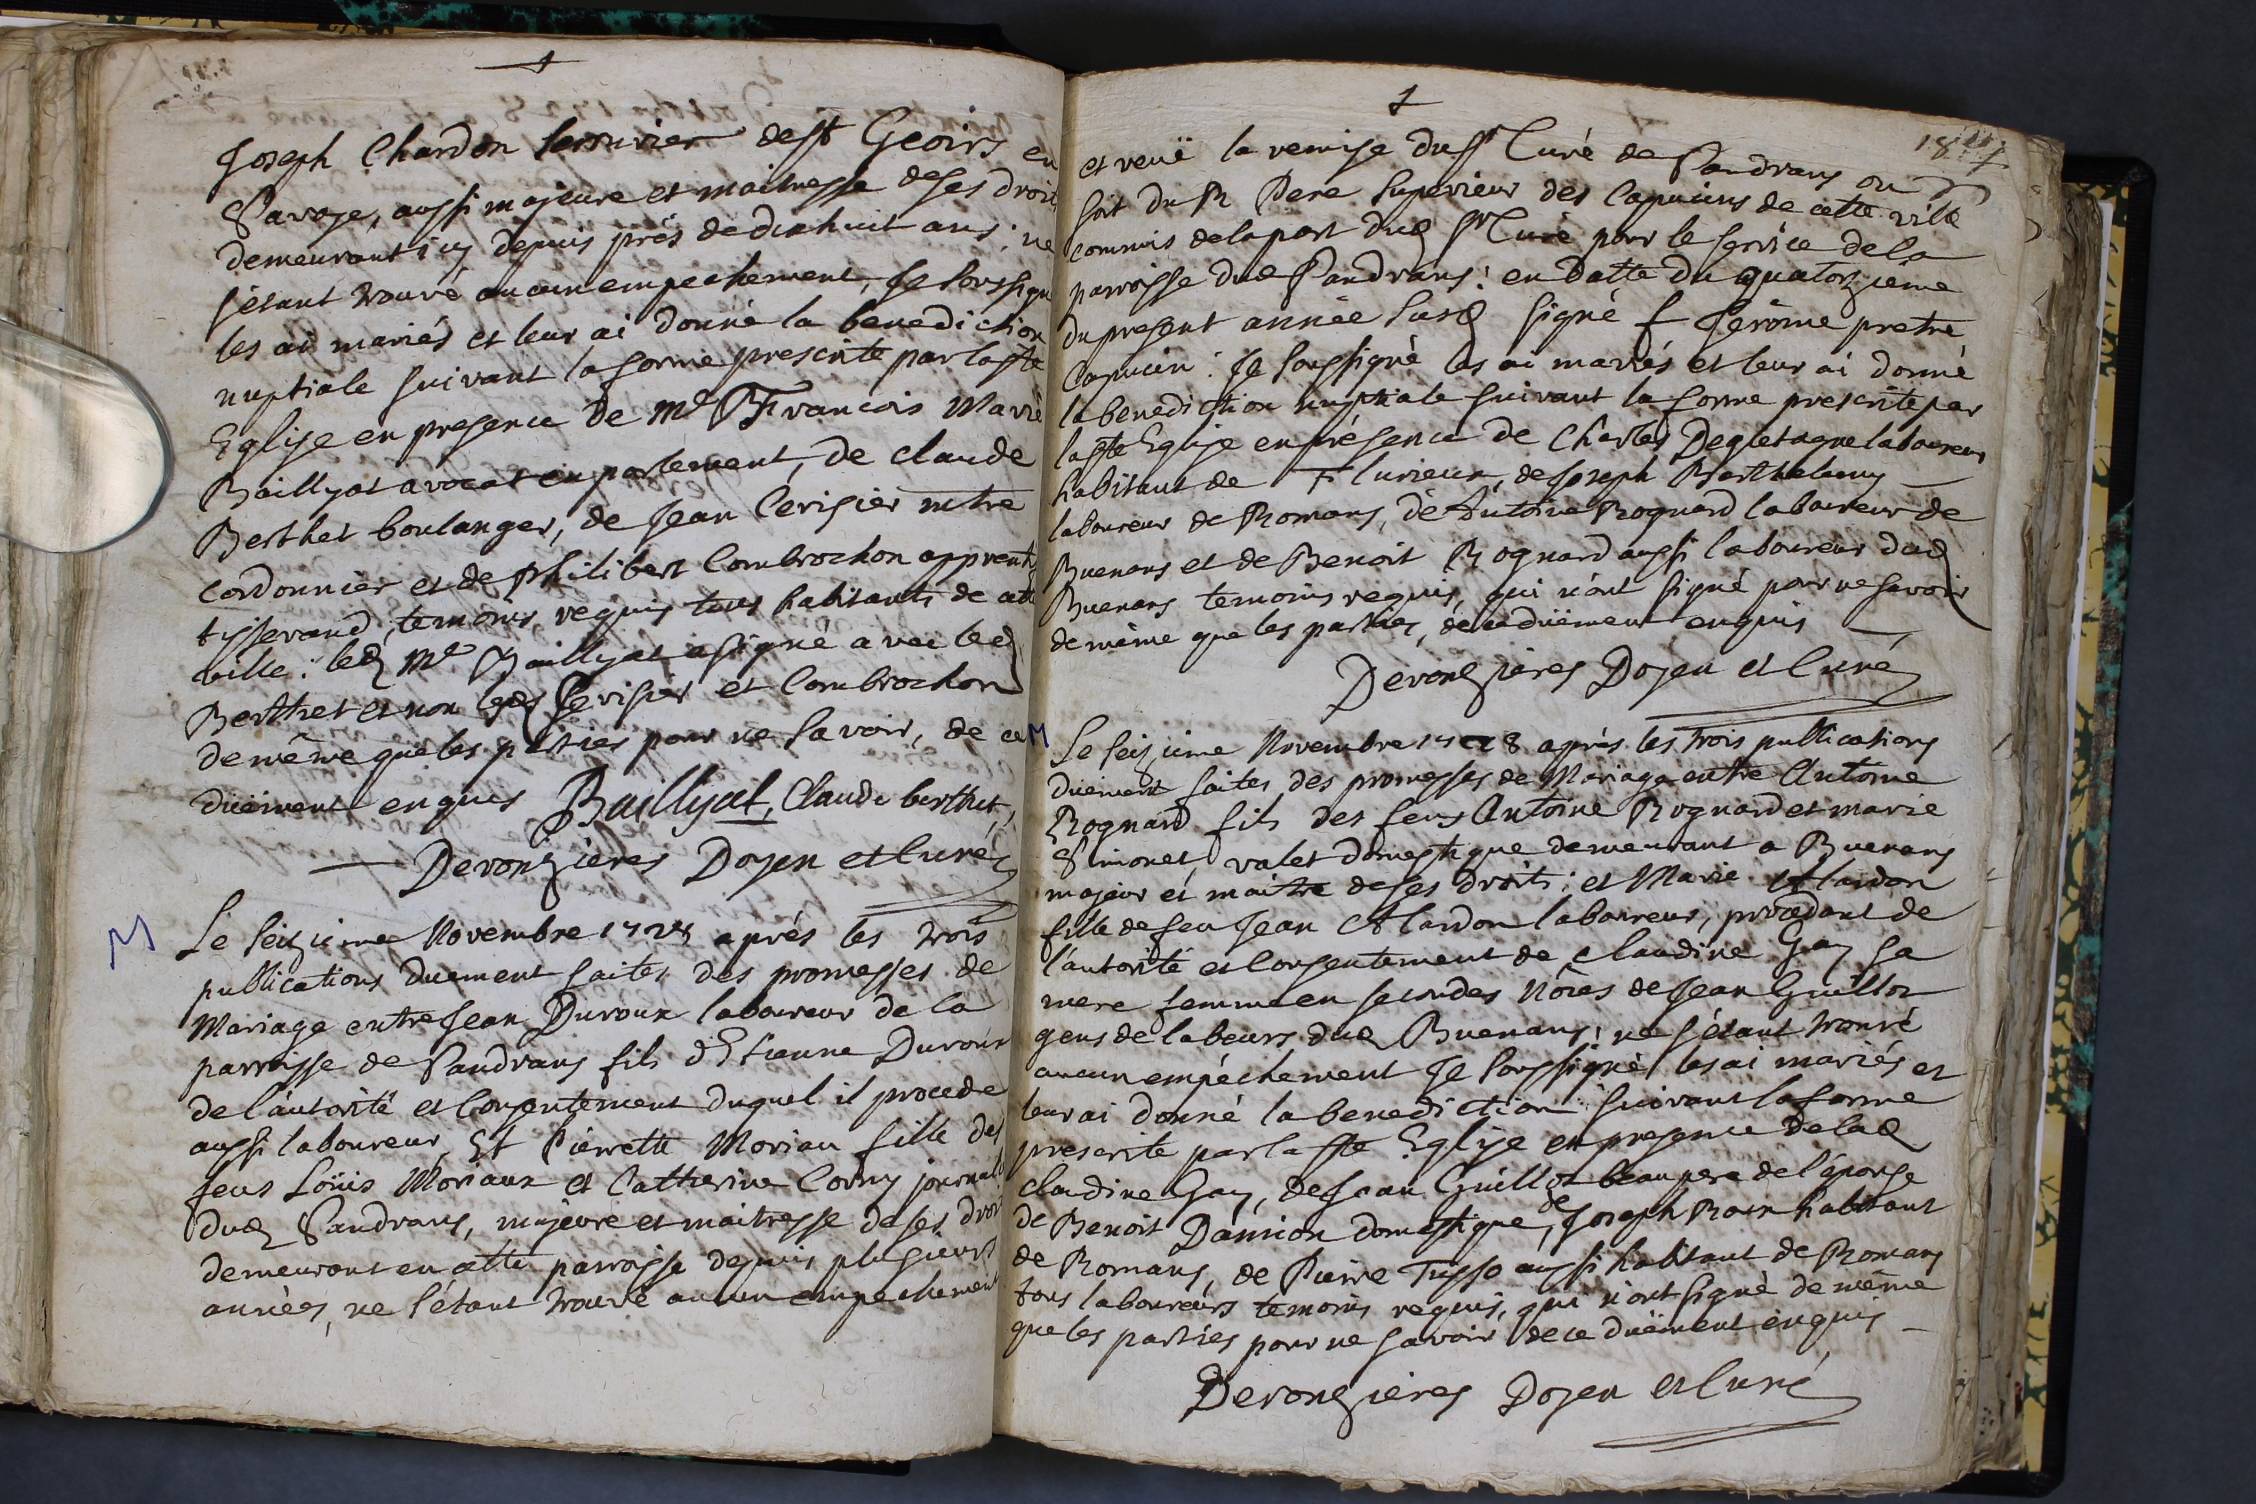 Joseph Chardon serrurier de st Geoirs en
Savoye, aussi majeure et maitresse de ses droits
demeurant icy depuis près de dixhuit ans; ne
s'étant trouvé aucun empechement, Je soussigné
les ai mariés et leur ai donné la benediction
nuptiale suivant la forme prescrite par la ste
Eglise en presence de Me François Marie
Baillyat avocat en parlement, de claude
Berthet boulanger, de Jean Cerisier mtre
cordonnier et de philibert Combrochon apprentif
tisserand, temoins requis tous habitants de cette
ville: led Me Baillyat a signé avec led
Berthet et non lesd Cerisier et Combrochon
de même que les parties pour ne savoir, de ce
düement enquis Baillyat, Claude berthet,
Devongières Doyen et Curé
M
Le seizieme Novembre 1728 aprés les trois
publications duement faites des promesses de
Mariage entre Jean Duroux laboureur de la
parroisse de Sandrans fils d'Etienne Duroux
de l'autorité et consentement duquel il procede
aussi laboureur, Et Pierrette Moriau fille des
feus Loüis Moriaux et Catherine Corny journal
dud Sandrans, majeure et maitresse de ses droits
demeurant en cette parroisse depuis plusieurs
années, ne s'étant trouvé aucun empechement
184
et veuë la remise du sr Curé de Sandrans ou
soit du R Pere superieur des Capucins de cette ville
commis de la part dud sr Curé pour le service de la
parroisse dud Sandrans: en datte du quatorzième
du present année susd signé f Jerôme pretre
Capucin: Je soussigné les ai mariés et leur ai donné
la benediction nuptiale suivant la forme prescrite par
la ste Eglise en présence de Charles Degletagne laboureur
habitant de Flurieux, de Joseph Barthelemy
laboureur de Romans, de Antoine Rognard laboureur de
Buenans et de Benoit Rognard aussi laboureur dud
Buenans temoins requis, qui n'ont signé pour ne savoir
de même que les parties, de ce düement enquis
Devongières Doyen et Curé
M
Le seizieme Novembre 1728 aprés les trois publications
duement faites des promesses de Mariage entre Antoine
Rognard fils des feus Antoine Rognard et marie
Simonet, valet domestique demeurant a Buenans
majeur et maitre de ses droits; et Marie Alardon
fille de feu Jean Alardon laboureur, procedant de
l'autorité et consentement de Claudine Gay sa
mere femme en secondes Nôces de Jean Guillot
gens de labeurs dud Buenans; ne s'étant trouvé
aucun empêchement Je soussigné les ai mariés et
leur ai donné la benediction suivant la forme
prescrite par la ste Eglise en presence de lad
claudine Gay, de Jean Guillot beaupere de l'épouse
de Benoit Damion domestique, de Joseph Roux habitant
de Romans, de Pierre Tisso aussi habitant de Romans
tous laboureurs temoins requis, qui n'ont signé de même
que les parties pour ne savoir de ce düement enquis
Devongières Doyen et Curé